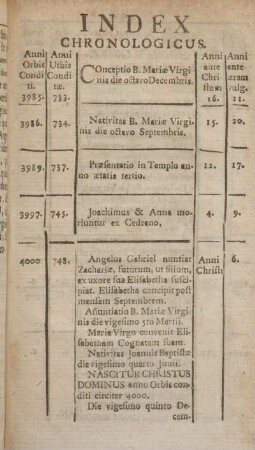 INDEX
CHRONOLOGICUS.
Anni Orbis Conditi.
Anni Urbis Conditæ.
Anni ante Christum
Anni ante æram vulg.
3985. 733. Conceptio B. Mariæ Virgi- 16. 21.
nis die octavo Decembris.
3986. 734. Nativitas B. Mariæ Virgi- 15. 20.
nis die octavo Septembris.
3989. 737. Præsentatio in Templo an- 12. 17.
no ætatis tertio.
3997. 745. Joachimus & Anna mo- 4. 9.
riuntur ex Cedreno,
4000 748. Angelus Gabriel nuntiat Anni Christi 6.
Zachariæ, futurum, ut filium,
ex uxore sua Elisabetha susci-
piat. Elisabetha concipit post
mensem Septembrem.
Añuntiatio B. Mariæ Virgi-
nis die vigesimo 5to Martii.
Maria Virgo convenit Eli-
sabetham Cognatam suam.
Nativitas Joannis Baptistæ
die vigesimo quarto Junii.
NASCITUR CHRISTUS
DOMINUS anno Orbis con-
diti circiter 4000.
Die vigesimo quinto De-
cem-